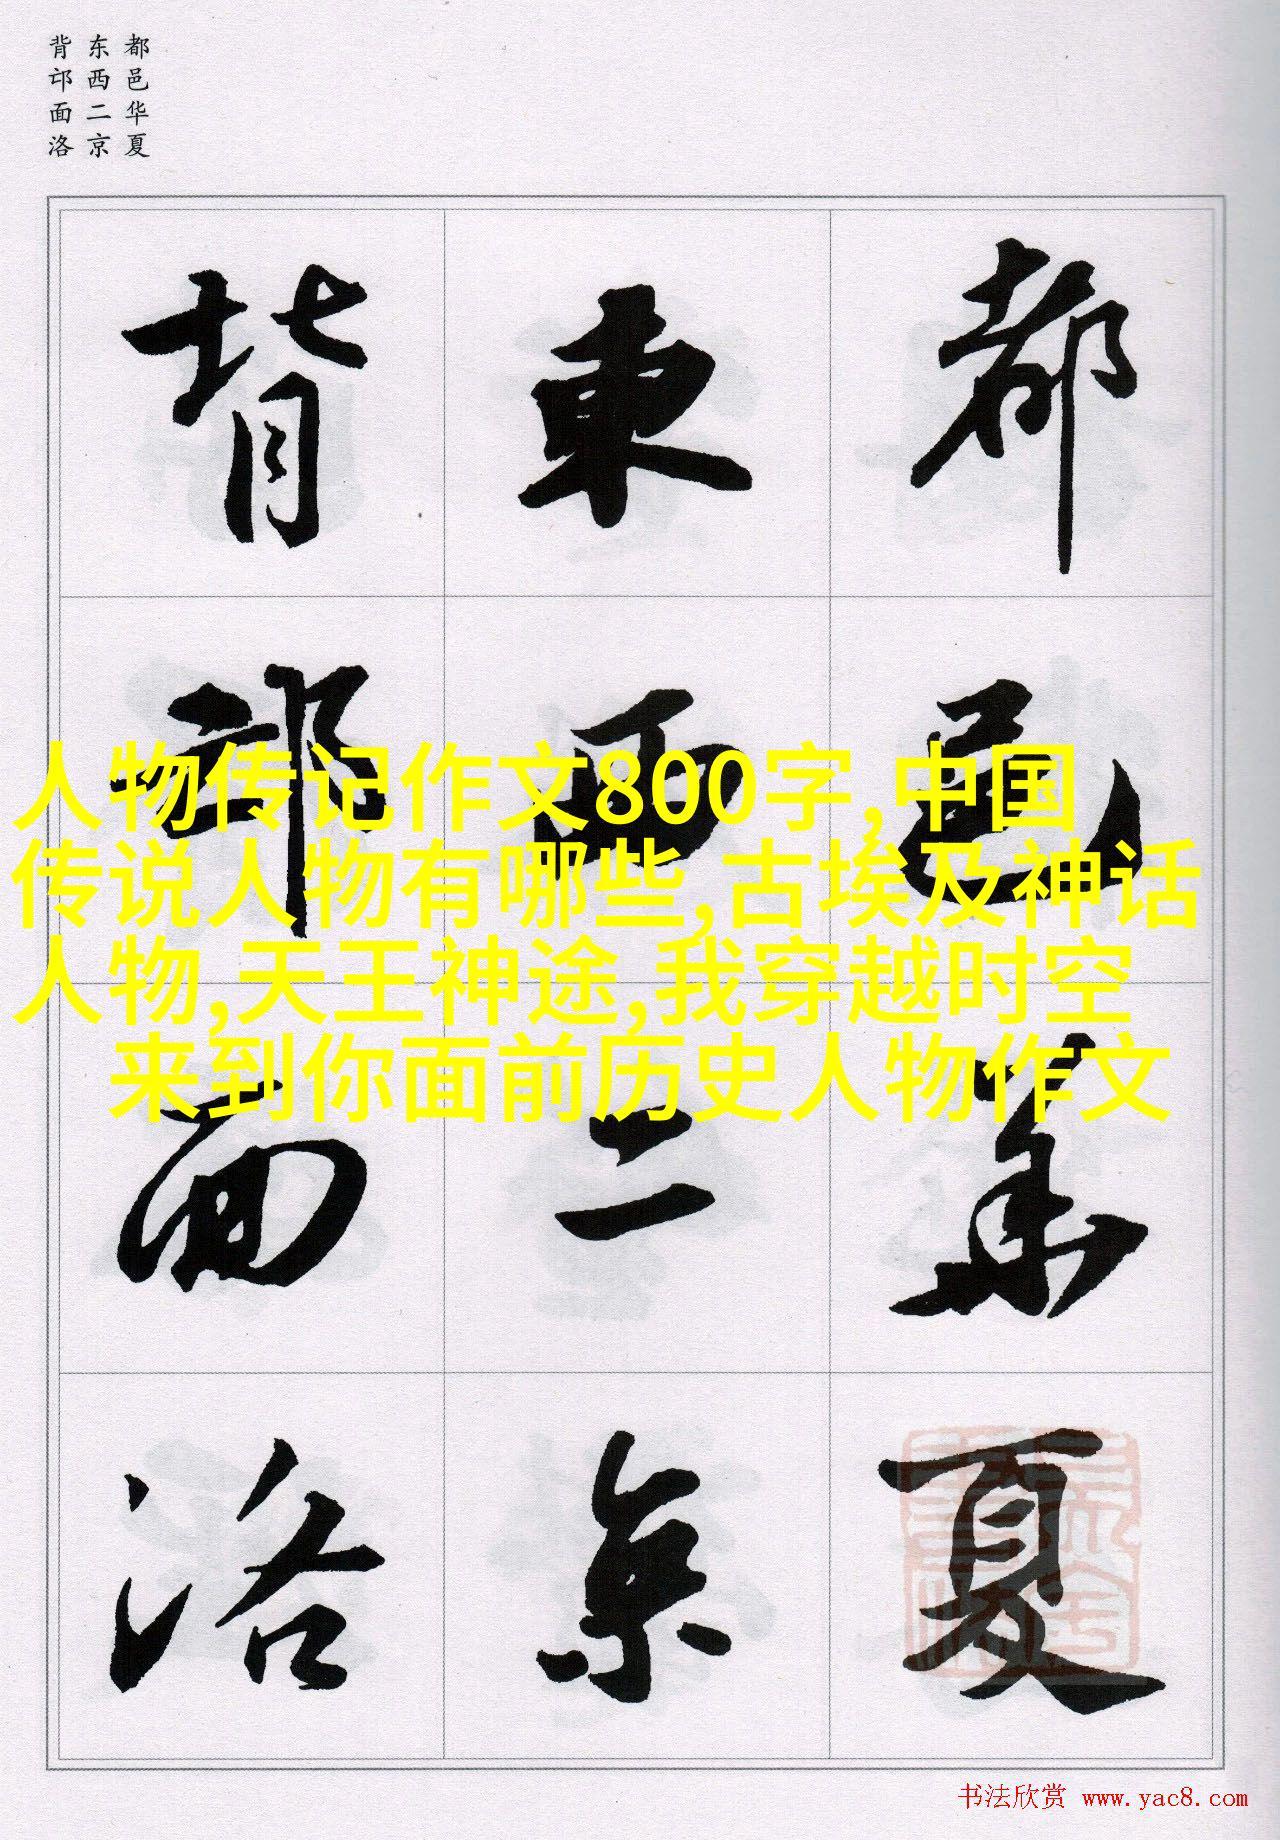 都邑华夏
东西二京
背邙面洛
都邑華夏
東西二京
背邙面洛
人物传记作文800字,中国
传说人物有哪些,古埃及神话
人物,天王神途,我穿越时空
来到你面前历史人物作文
书法欣赏 www.yac8.com